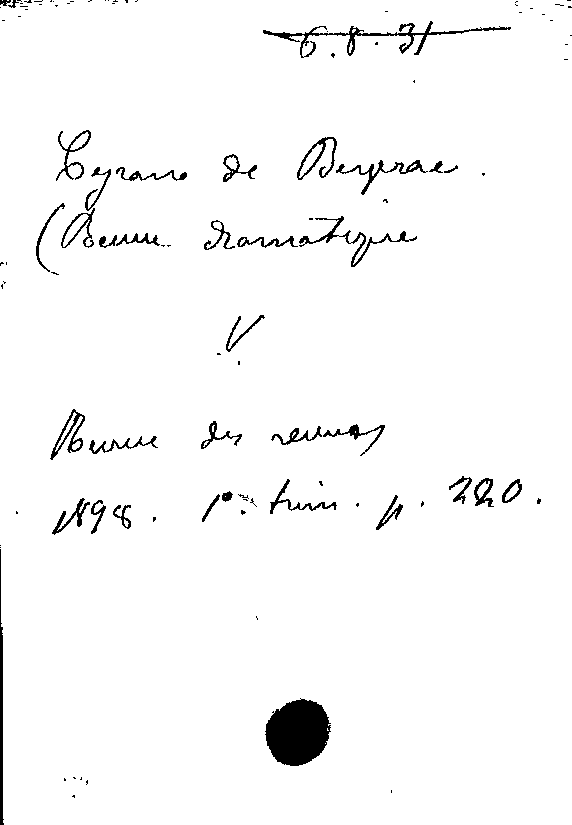 6.8.31
Cyrano de Bergerac.
(Revue dramatique
V.
Revue des revues
1898. 1er. trim. p. 220.